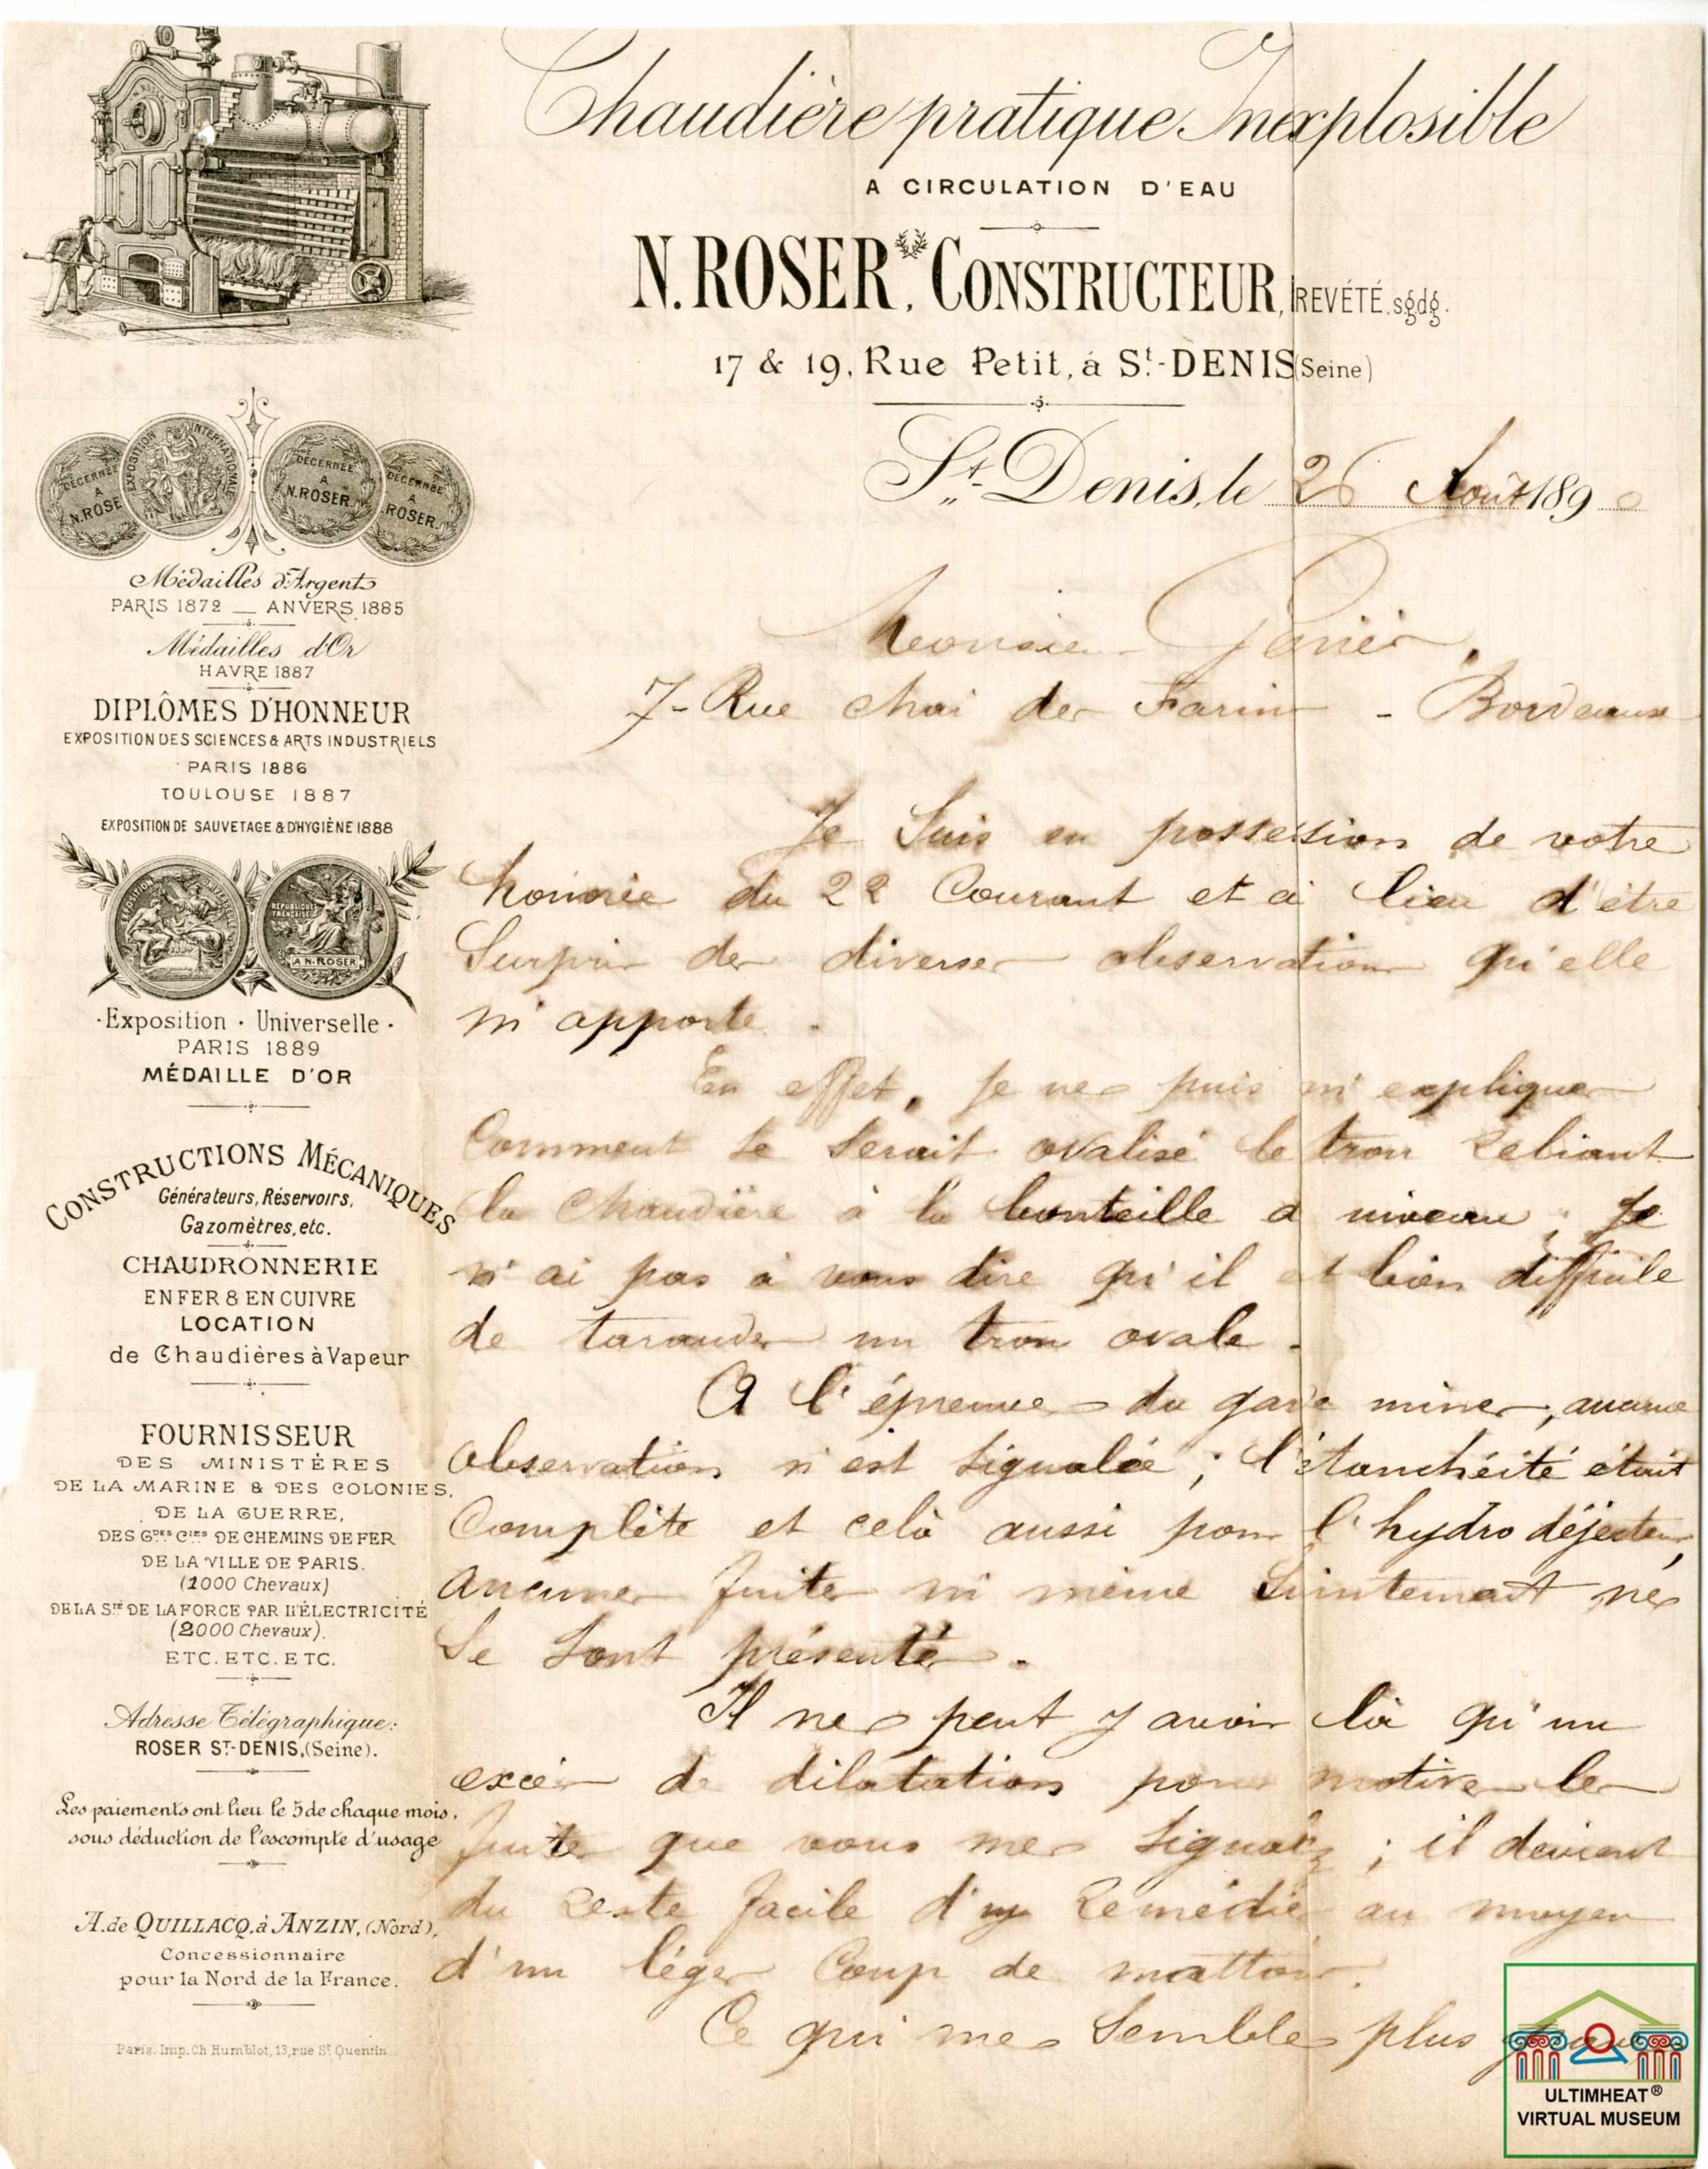 Chaudière pratique Inexplosible
A CIRCULATION D'EAU
N. ROSER, CONSTRUCTEUR, BREVÉTÉ. s.g.d.g.
17 & 19, Rue Petit, à St-DENIS (Seine)
St-Denis, le 26 Août 1890
DÉCERNÉE A N. ROSER
EXPOSITION INTERNATIONALE
DÉCERNÉE A N. ROSER
DÉCERNÉE A ROSER
Médailles d'Argent
PARIS 1872 _ ANVERS 1885
Médailles d'Or
HAVRE 1887
DIPLÔMES D'HONNEUR
EXPOSITION DES SCIENCES & ARTS INDUSTRIELS
PARIS 1886
TOULOUSE 1887
EXPOSITION DE SAUVETAGE & D'HYGIÈNE 1888
EXPOSITION
RÉPUBLIQUE FRANÇAISE
A N. ROSER
Exposition · Universelle
PARIS 1889
MÉDAILLE D'OR
CONSTRUCTIONS MÉCANIQUES
Générateurs, Réservoirs,
Gazomètres, etc.
CHAUDRONNERIE
EN FER & EN CUIVRE
LOCATION
de Chaudières à Vapeur
FOURNISSEUR
DES MINISTÈRES
DE LA MARINE & DES COLONIES,
DE LA GUERRE,
DES GDES CIES DE CHEMINS DE FER
DE LA VILLE DE PARIS.
(1000 Chevaux)
DE LA STÉ DE LA FORCE PAR L'ÉLECTRICITÉ
(2000 Chevaux).
ETC. ETC. ETC.
Adresse Télégraphique:
ROSER ST-DENIS, (Seine).
Les paiements ont lieu le 5 de chaque mois,
sous déduction de l'escompte d'usage
A. de QUILLACQ, à ANZIN, (Nord),
Concessionnaire
pour la Nord de la France.
Paris. Imp. Ch Humblot, 13, rue St Quentin
Monsieur
7 - Rue Chai des Farines - Bordeaux
Je suis en possession de votre
honorée du 22 Courant et ai lieu d'être
Surpris des diverses observations qu'elle
m'apporte.
En effet, je ne puis m'expliquer
Comment se serait ovalisé le trou reliant
la Chaudière à la bouteille a niveau ; Je
n'ai pas à vous dire qu'il est bien difficile
de tarauder un trou ovale.
A l'épreuve du garde mines, aucune
observation n'est signalée ; l'étanchéité était
Complète et celà aussi pour l'hydro déjecteur,
aucunes fuites ni même suintement ne
Se Sont présentés.
Il ne peut y avoir là qu'un
excès de dilatation pour motiver les
fuites que vous me signalez ; il devient
du reste facile d'y remédier au moyen
d'un léger Coup de mattoir.
Ce qui me Semble plus
ULTIMHEAT®
VIRTUAL MUSEUM